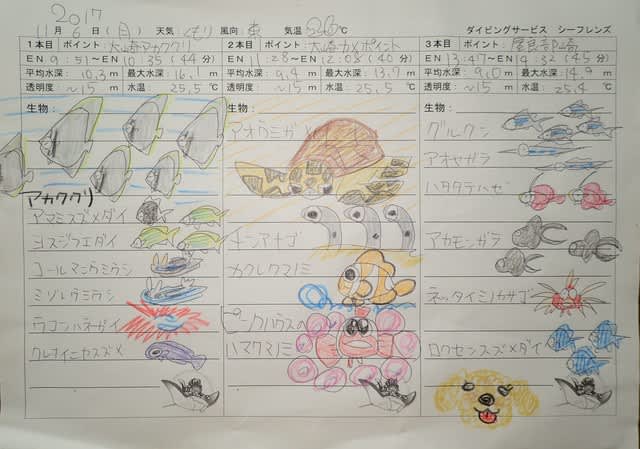 2017
11月 6日 (月) 天気: くもり 風向: 東 気温: 26℃ ダイビングサービス シーフレンズ
1本目 ポイント: 大崎アカククリ
EN 9:51～EN 10:35 (44分)
平均水深: 10.3m 最大水深: 16.1m
透明度: ～15m 水温: 25.5℃
生物:
アカククリ
アマミスズメダイ
ヨスジフエダイ
コールマンウミウシ
ミゾレウミウシ
ウコンハネガイ
クレナイニセスズメ
2本目 ポイント: 大崎カメポイント
EN 11:28～EN 12:08 (40分)
平均水深: 9.4m 最大水深: 13.7m
透明度: ～15m 水温: 25.5℃
生物:
アオウミガメ
チンアナゴ
カクレクマノミ
ピークハウスへ
ハマクマノミ
3本目 ポイント: 屋良部崎
EN 13:47～EN 14:32 (45分)
平均水深: 9.0m 最大水深: 14.9m
透明度: ～15m 水温: 25.4℃
生物:
グルクン
アオヤガラ
ハタタテハゼ
アカモンガラ
ネッタイミノカサゴ
ロクセンスズメダイ